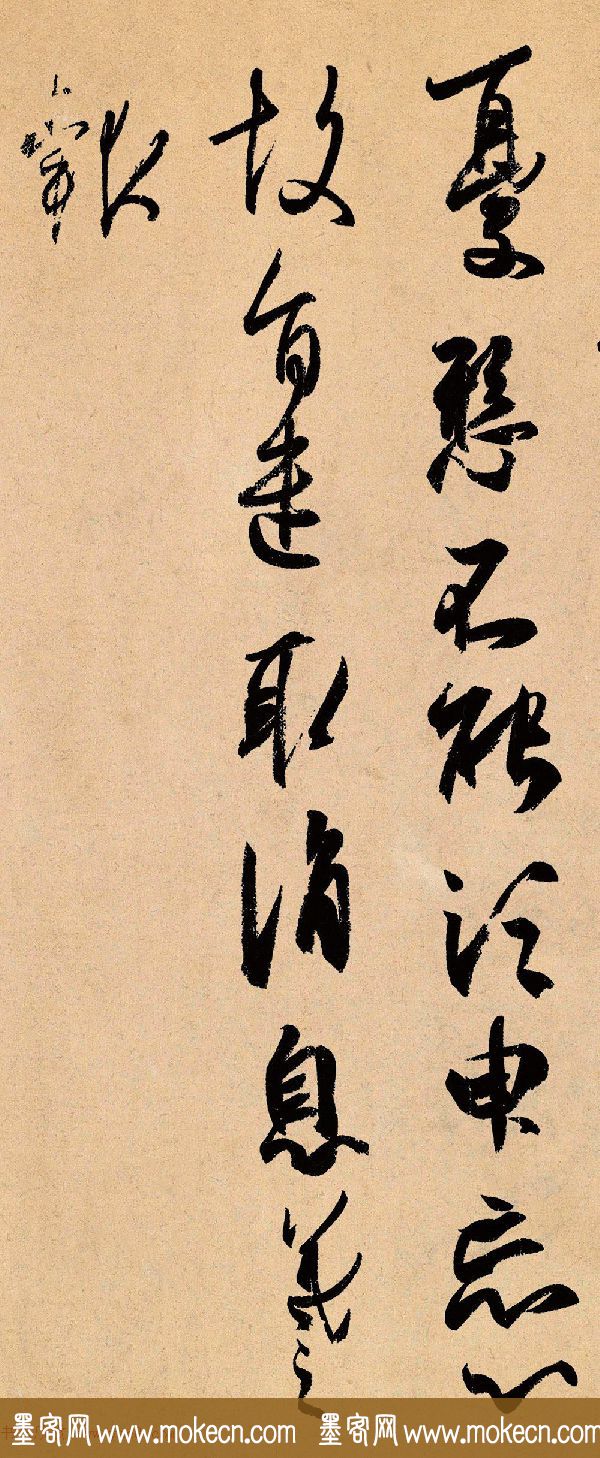 憂懸不能須臾忘心
故旨遣取消息羲之
報
墨客网 www.mokecn.com 墨客网 www.mokecn.com